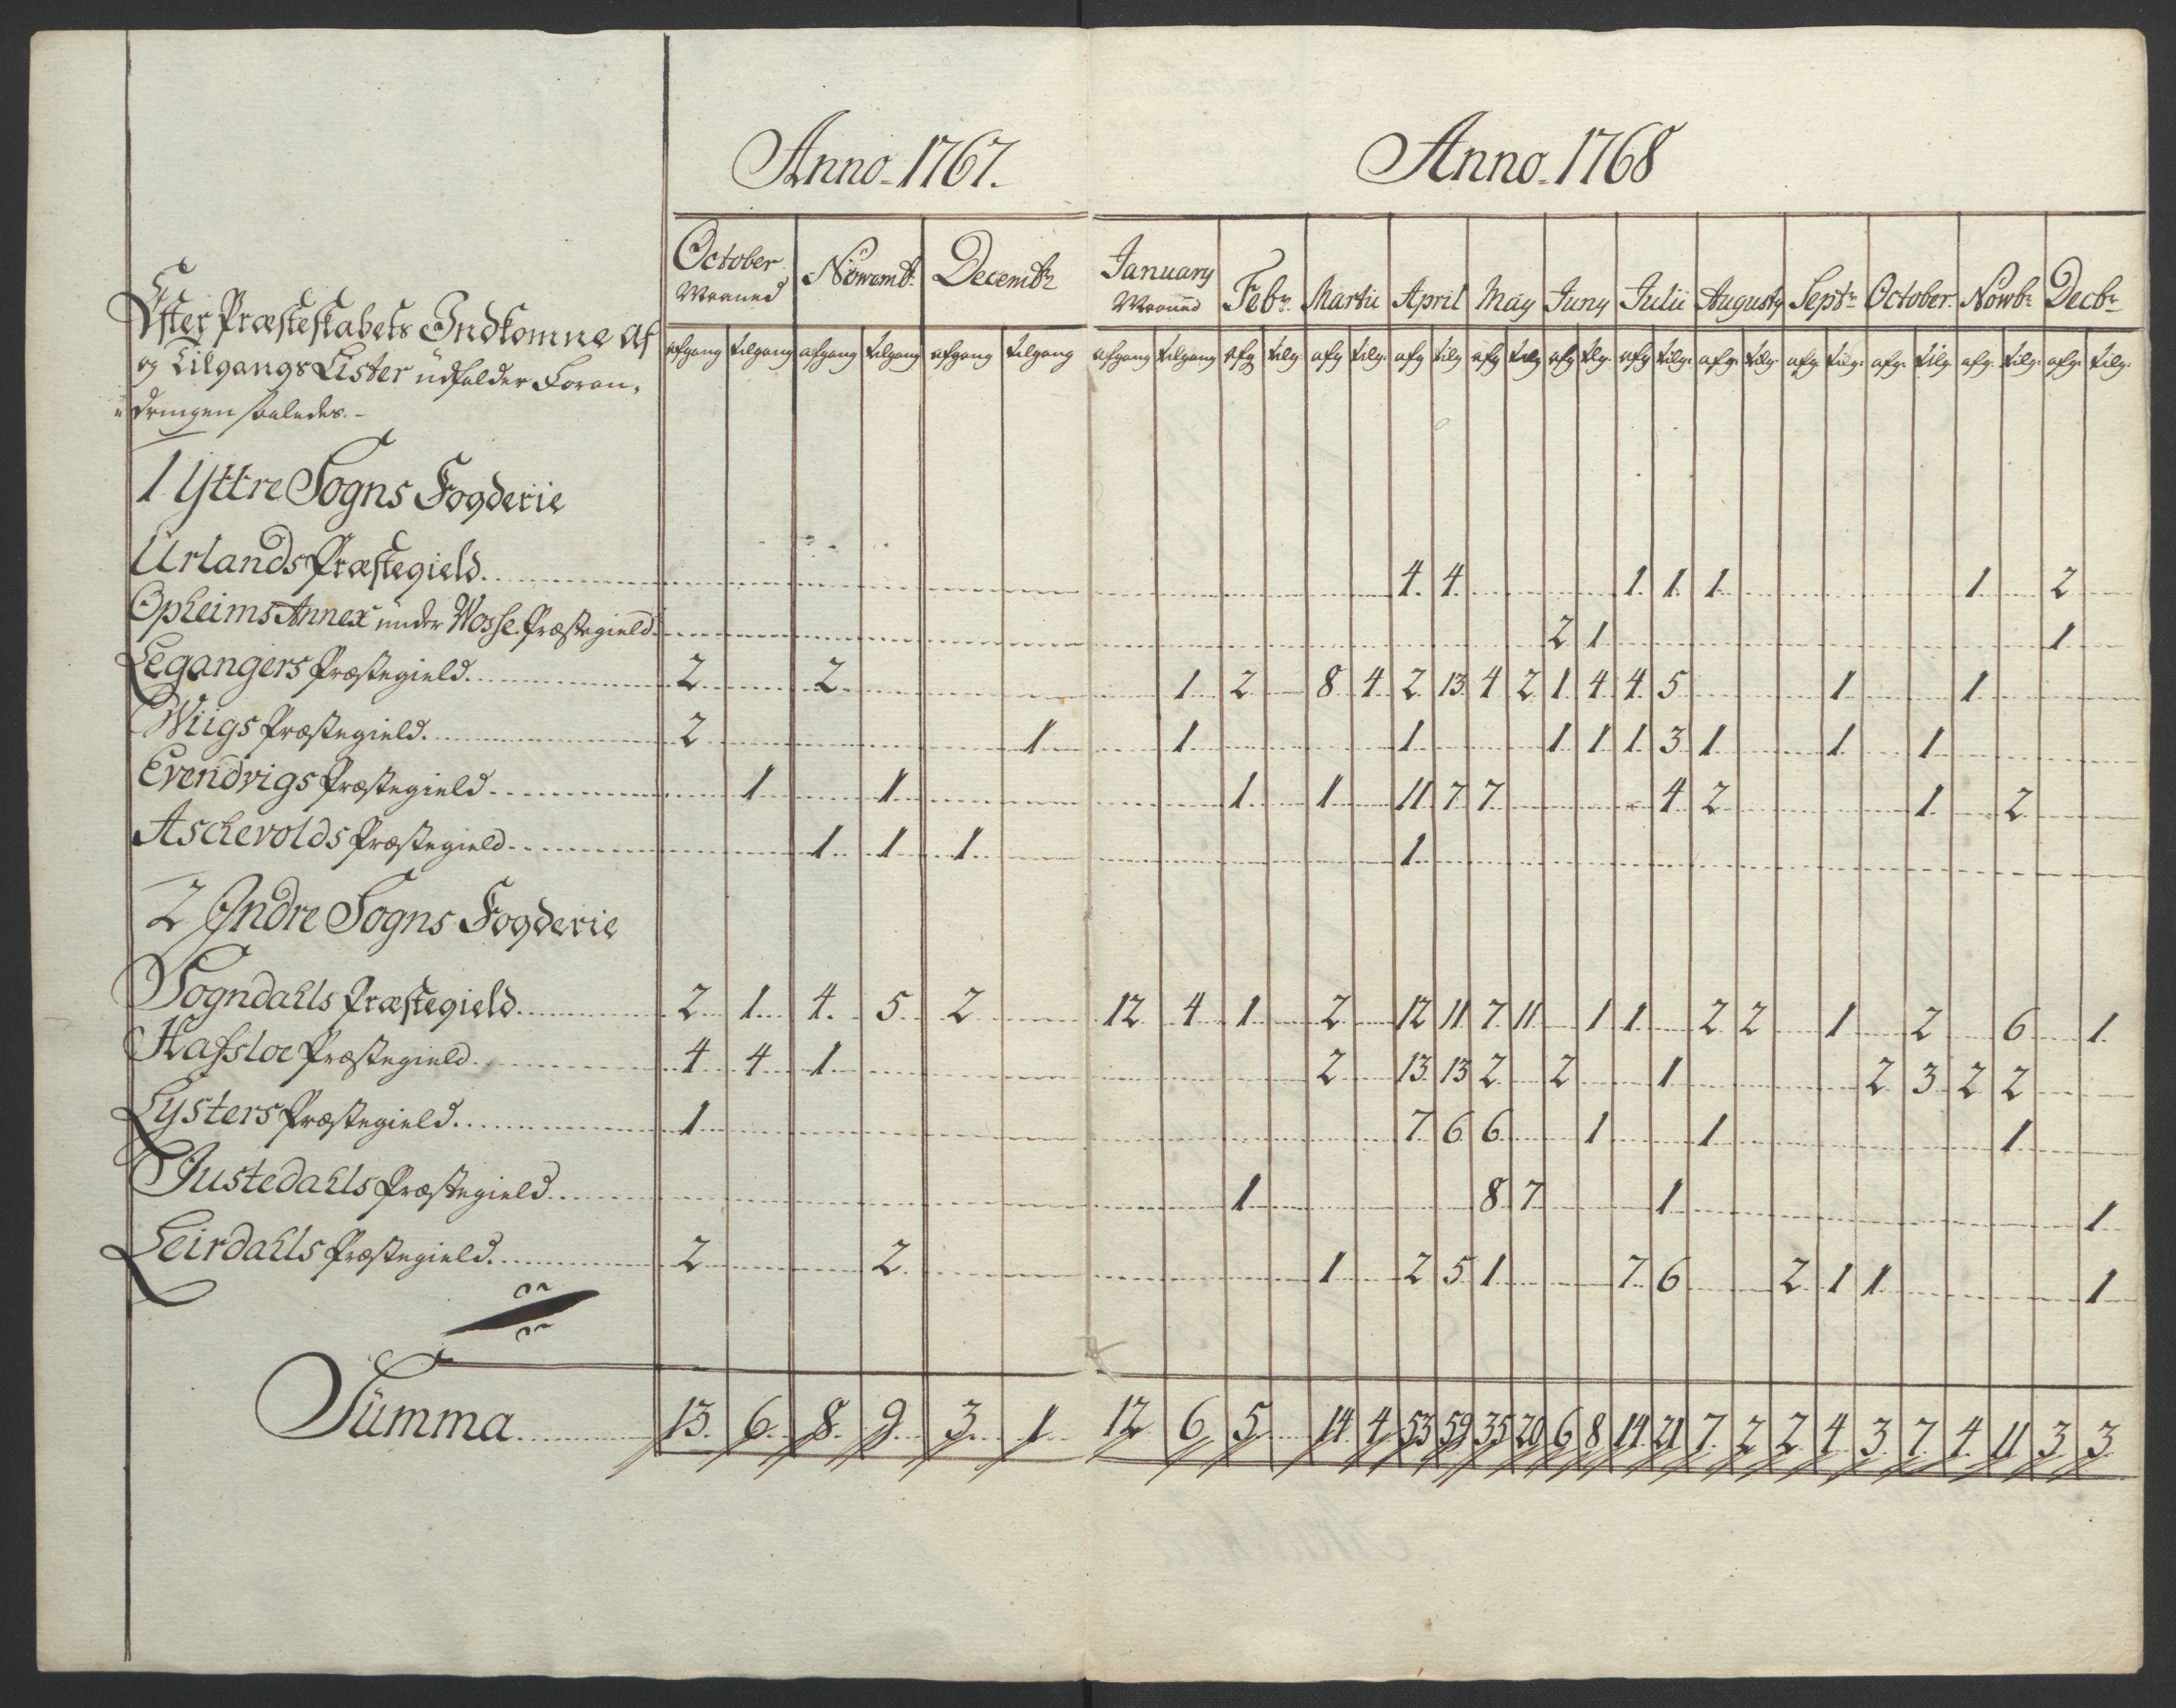 Anno 1767. Anno 1768
October Maaned Novemb: Decembr January Maaned Febr: Martii April May Juny Julii Augusty Septr October. Novbr Decbr
Efter Præsteskabets Indkomne Af
og Tilgangs Lister udfalder Foran,
dringen saaledes.
afgang tilgang afgang tilgang afgang tilgang afgang tilgang afg tilg afg tilg. afg tilg afg tilg afg tilg. afg tilg. afg. tilg. afg. tilg. afg. tilg. afg. tilg. afg. tilg.
1 Yttre Sogns Fogderie
Urlands Præstegield. 4. 4. 1. 1. 1. 1. 2
Opheims Annex under Vosse Præstegield. 2 1 1
Legangers Præstegield. 2 2 1 2 8 4 2 13 4 2 1 4 4 5 1 1
Wiigs Præstegield. 2 1 1 1 1 1 1 3 1 1 1
Evendvigs Præstegield. 1 1 1 1 11 7 7 4 2 1 2
Aschevolds Præstegield. 1 1 1 1
2 Indre Sogns Fogderie
Sogndahls Præstegield. 2 1 4 5 2 12 4 1 2 12 11 7 11 1 1 2 2 1 2 6 1
Hafsloe Præstegield. 4 4 1 2 13 13 2 2 1 2 3 2 2
Lysters Præstegield. 1 7 6 6 1 1 1
Justedahls Præstegield. 1 8 7 1 1
Leirdahls Præstegield. 2 2 1 2 5 1 7 6 2 1 1 1
Summa 13. 6. 8. 9. 3. 1 12 6 5 14 4 53 59 35 20 6 8 14 21 7 2 2 4 3 7 4 11 3 3